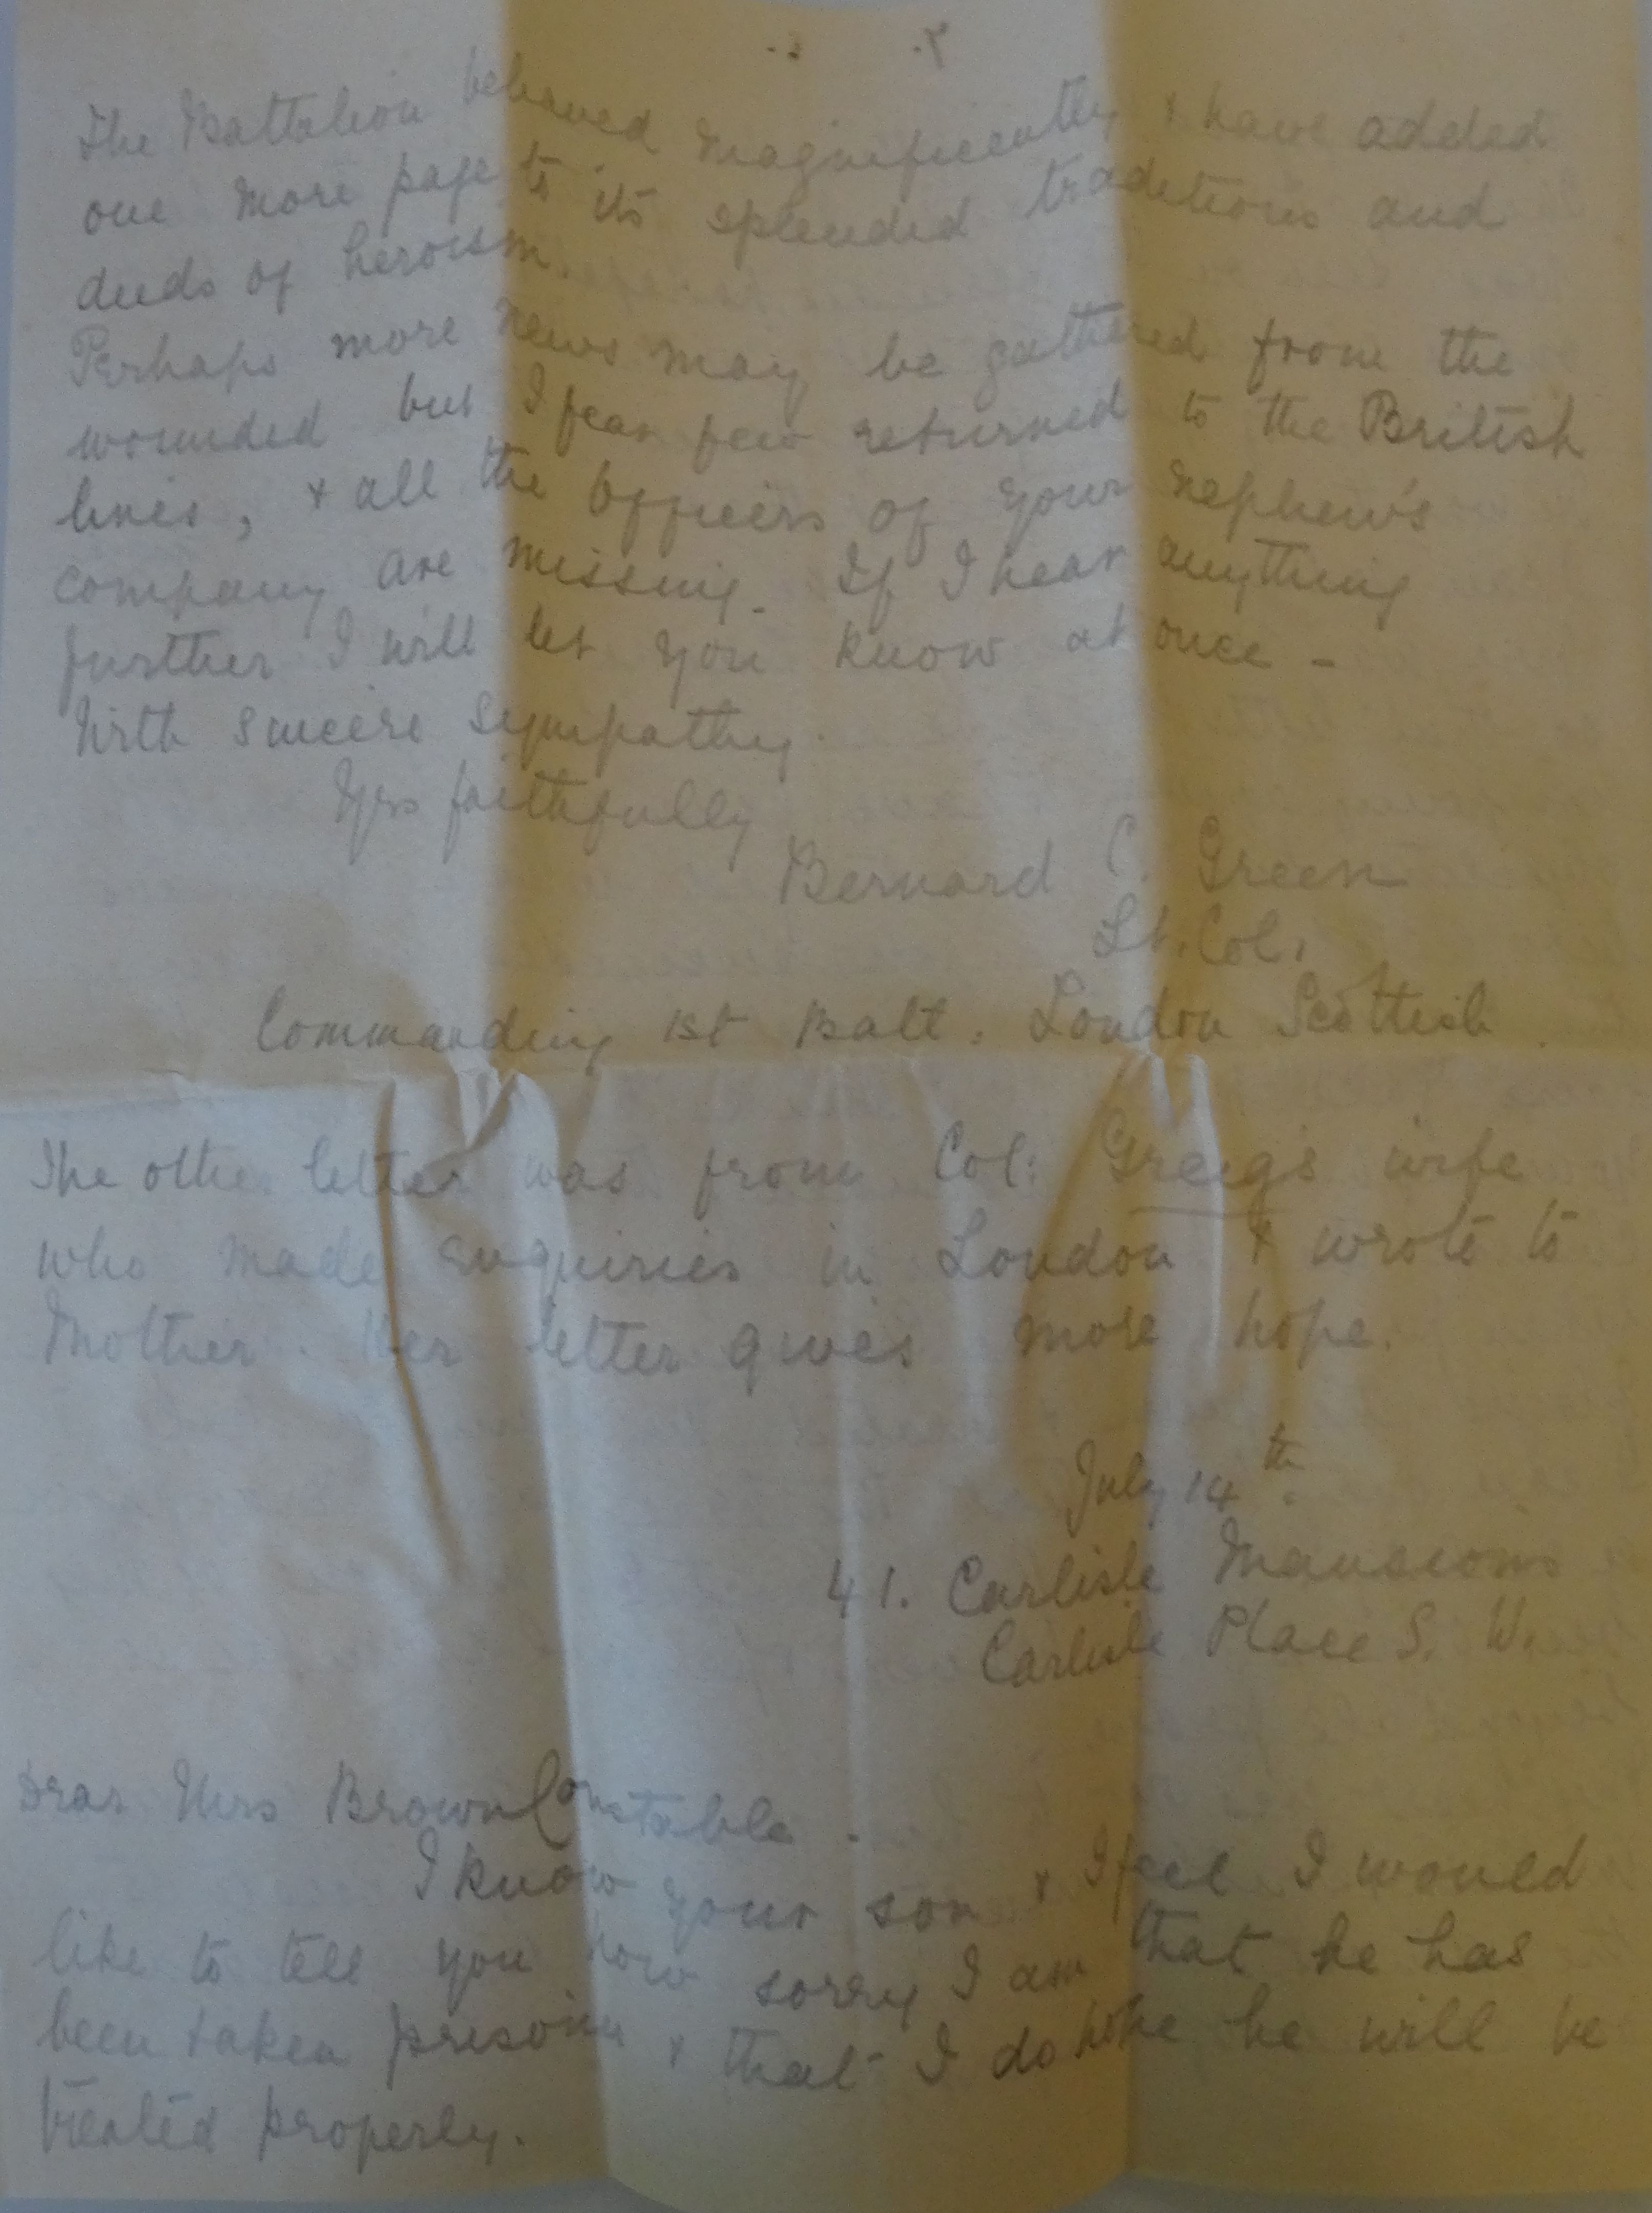 2.
The Battalion behaved magnificently & have added
one more page to its splendid traditions and
deeds of heroism.
Perhaps more news may be gathered from the
wounded but I fear few returned to the British
lines, & all the Officers of your nephew's
company are missing. If I hear anything
further I will let you know at once -
With sincere sympathy.
Yrs faithfully
Bernard C. Green
Lt. Col.
Commanding 1st Batt. London Scottish.
The other letter was from Col: Greig's wife
who made enquiries in London & wrote to
Mother. Her letter gives more hope.
July 14th.
41. Carlisle Mansions
Carlisle Place S. W.
Dear Mrs Brown Constable.
I know your son & I feel I would
like to tell you how sorry I am that he has
been taken prisoner & that I do hope he will be
treated properly.